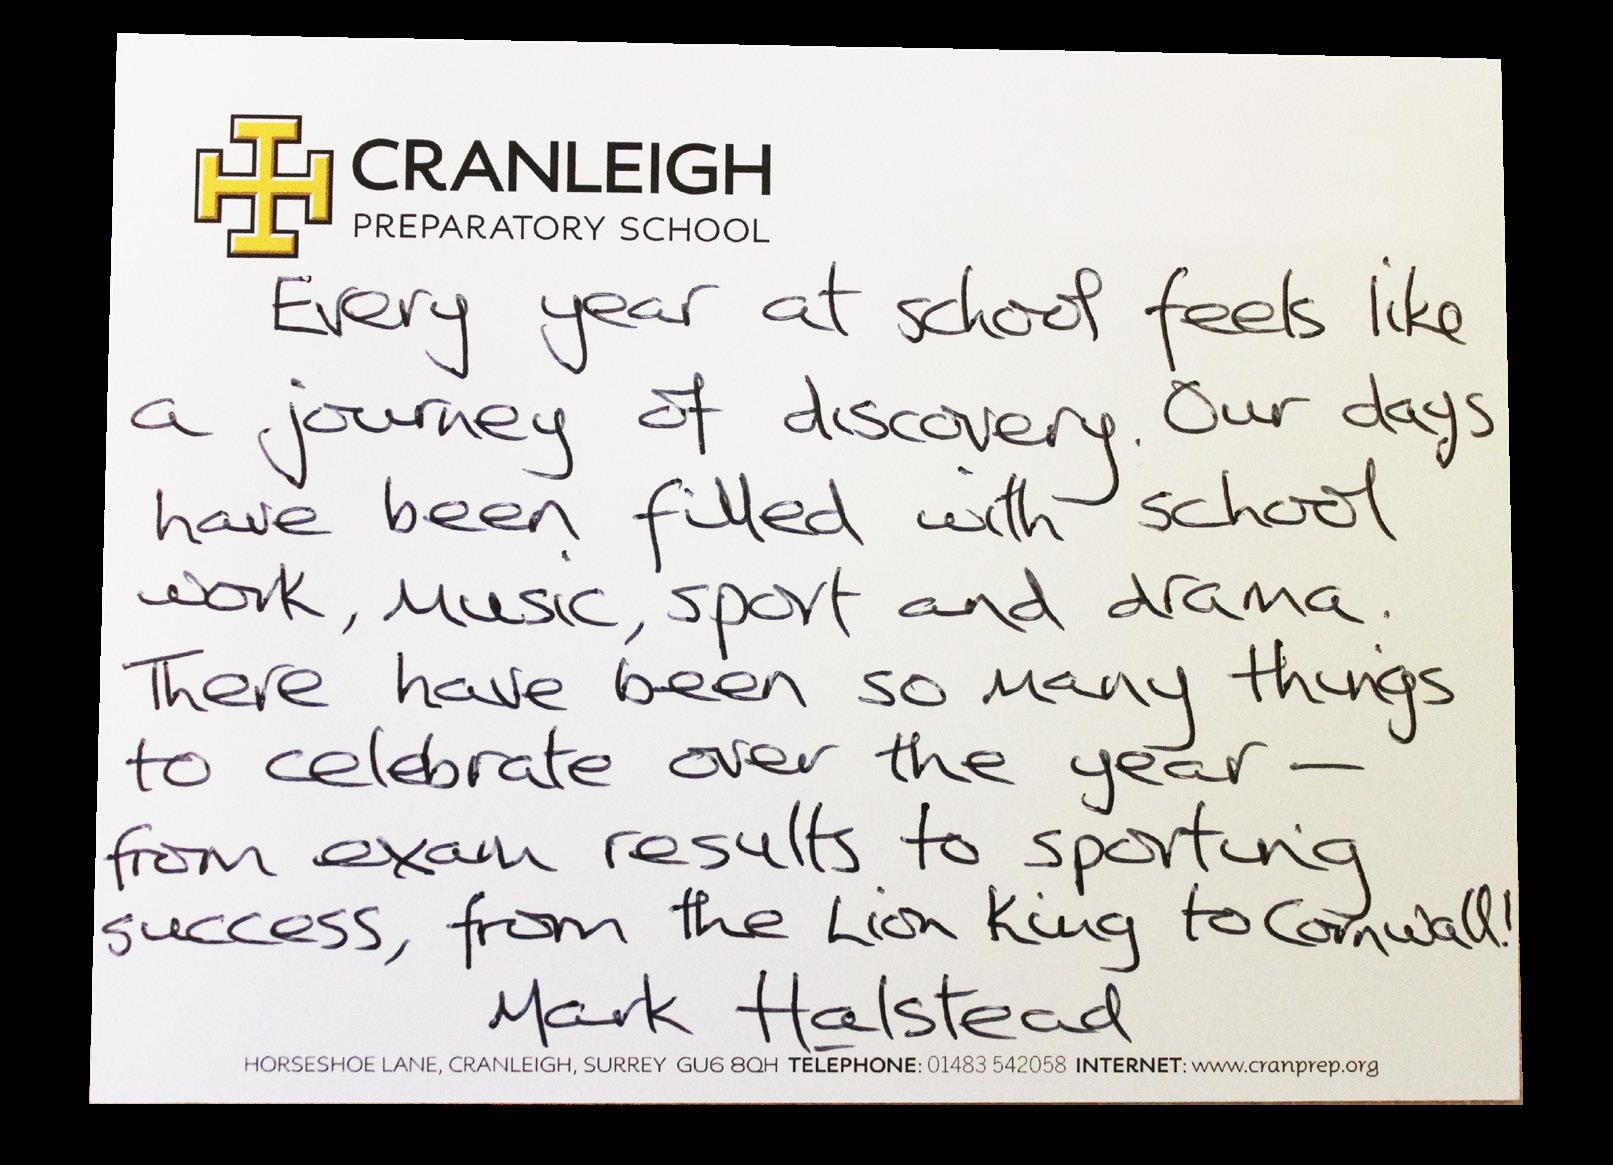 CRANLEIGH
PREPARATORY SCHOOL
Every year at school feels like
a journey of discovery. Our days
have been filled with school
work, music, sport and drama.
There have been so many things
to celebrate over the year –
from exam results to sporting
success, from the Lion King to Cornwall!
Mark Halstead
HORSESHOE LANE, CRANLEIGH, SURREY GU6 8QH TELEPHONE: 01483 542058 INTERNET: www.cranprep.org